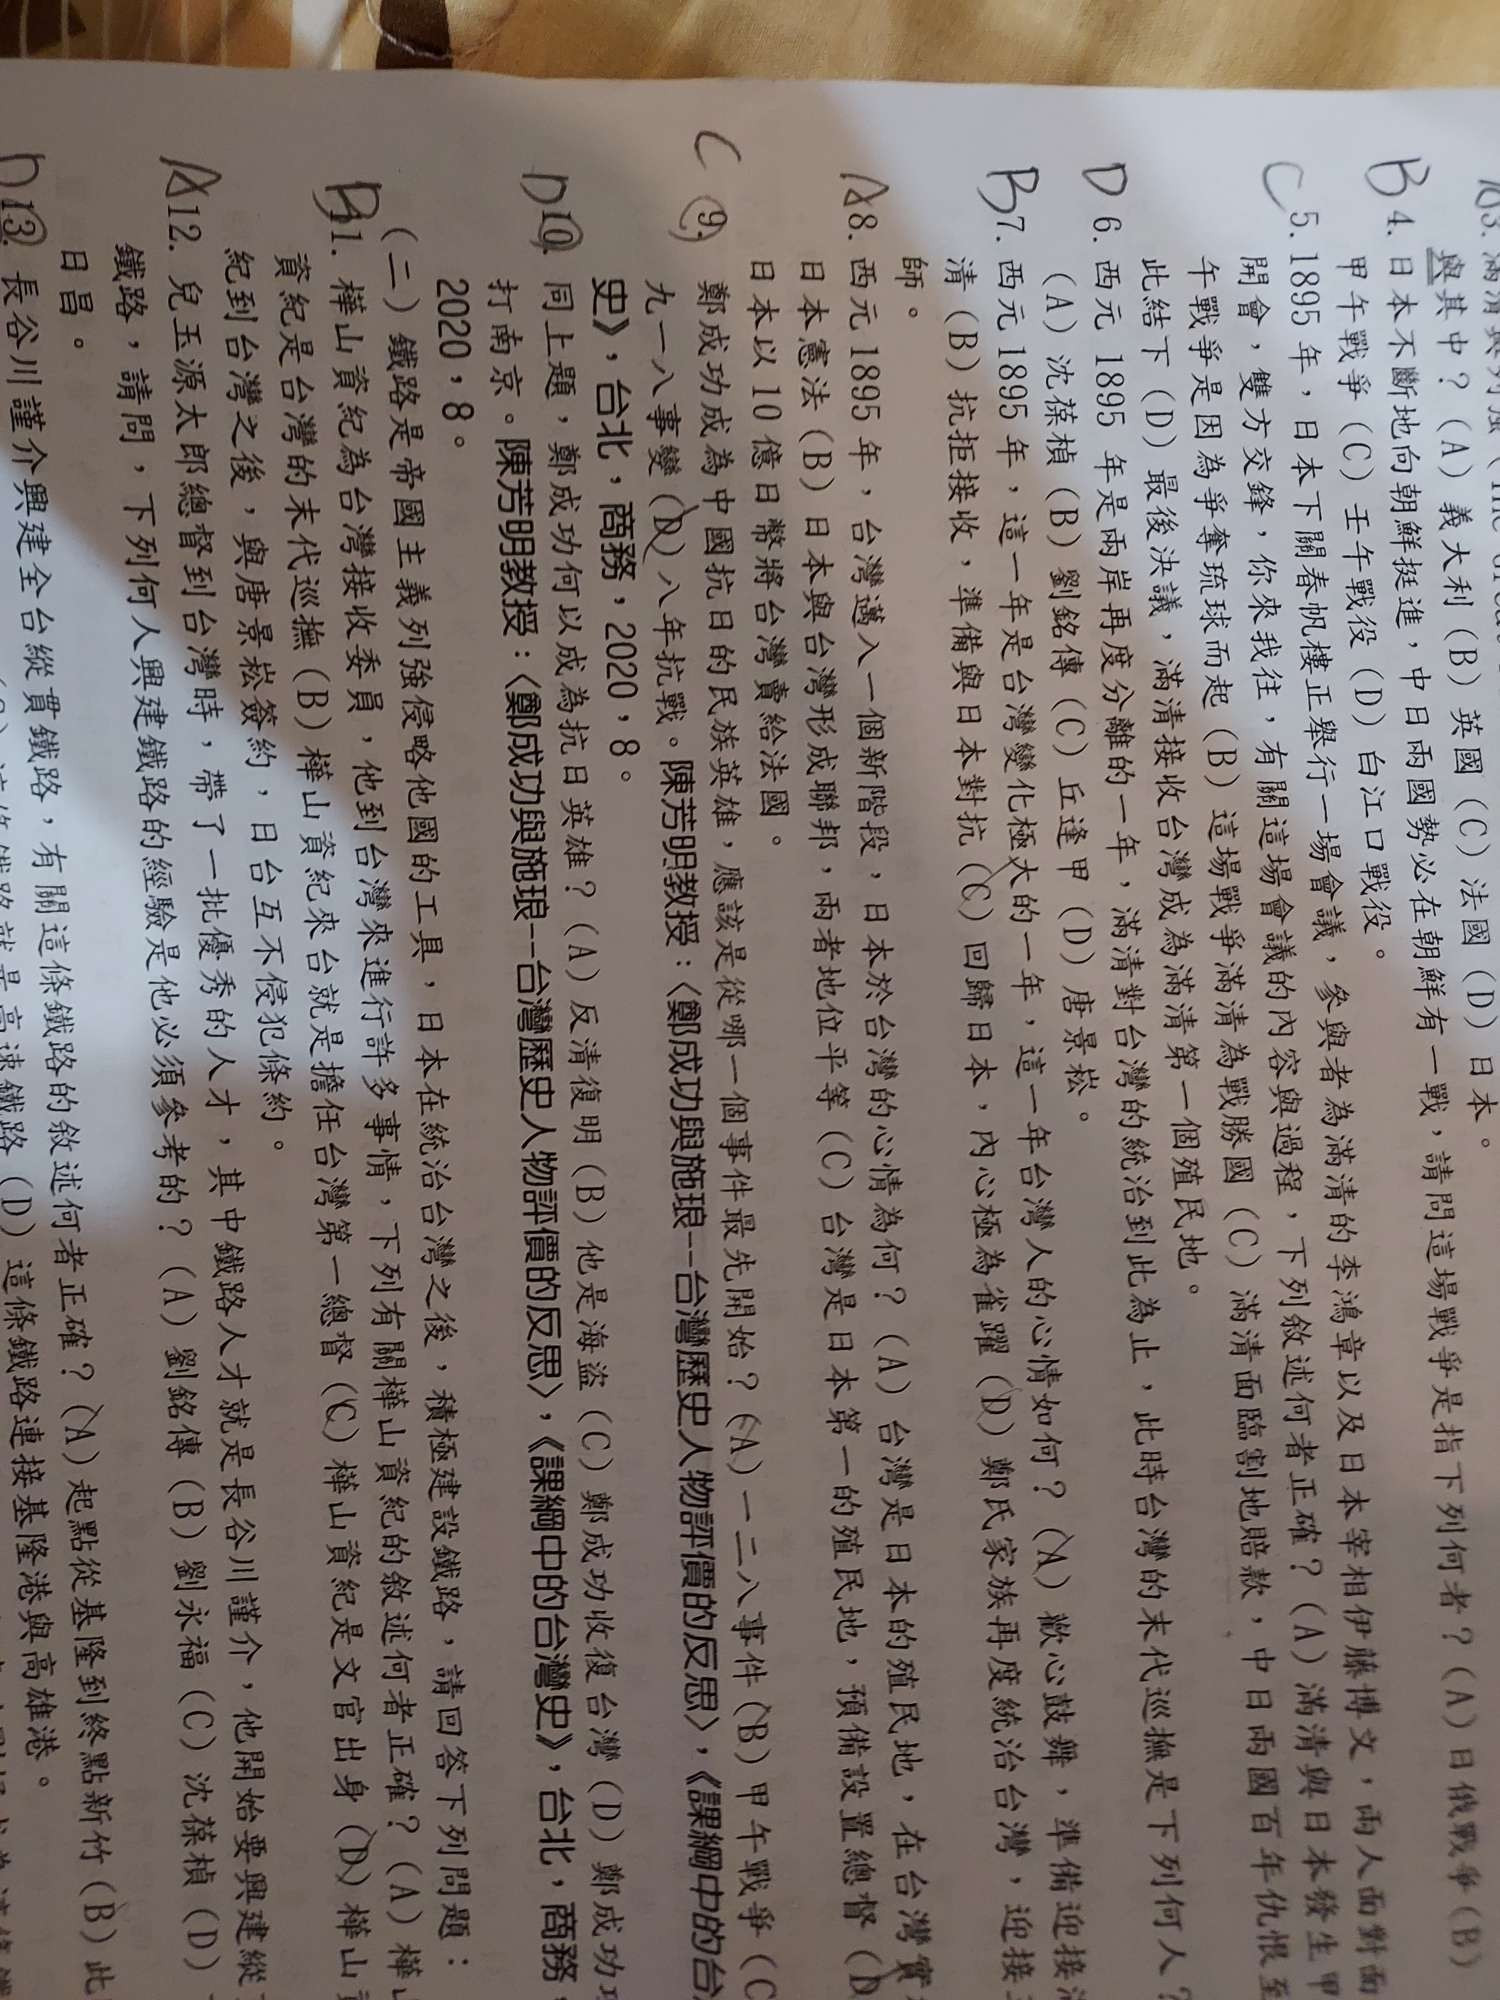 與其中？（A）義大利（B）英國（C）法國（D）日本。
B4.日本不斷地向朝鮮挺進，中日兩國勢必在朝鮮有一戰，請問這場戰爭是指下列何者？（A）日俄戰爭（B）
甲午戰爭（C）壬午戰役（D）白江口戰役。
C5.1895年，日本下關春帆樓正舉行一場會議，參與者為滿清的李鴻章以及日本宰相伊藤博文，兩人面對面
開會，雙方交鋒，你來我往，有關這場會議的內容與過程，下列敘述何者正確？（A）滿清與日本發生甲
午戰爭是因為爭奪琉球而起（B）這場戰爭滿清為戰勝國（C）滿清面臨割地賠款，中日兩國百年仇恨至
此結下（D）最後決議，滿清接收台灣成為滿清第一個殖民地。
D6.西元1895年是兩岸再度分離的一年，滿清對台灣的統治到此為止，此時台灣的末代巡撫是下列何人？
（A）沈葆楨（B）劉銘傳（C）丘逢甲（D）唐景崧。
B7.西元1895年，這一年是台灣變化極大的一年，這一年台灣人的心情如何？（A）歡心鼓舞，準備迎接
清（B）抗拒接收，準備與日本對抗（C）回歸日本，內心極為雀躍（D）鄭氏家族再度統治台灣，迎接
師。
A8.西元1895年，台灣邁入一個新階段，日本於台灣的心情為何？（A）台灣是日本的殖民地，在台灣實
日本憲法（B）日本與台灣形成聯邦，兩者地位平等（C）台灣是日本第一的殖民地，預備設置總督（D
日本以10億日幣將台灣賣給法國。
C 9. 鄭成功成為中國抗日的民族英雄，應該是從哪一個事件最先開始？（A）一二八事件（B）甲午戰爭（C
九一八事變（D）八年抗戰。陳芳明教授：〈鄭成功與施琅--台灣歷史人物評價的反思〉，《課綱中的台
史》，台北，商務，2020，8。
D10. 同上題，鄭成功何以成為抗日英雄？（A）反清復明（B）他是海盜（C）鄭成功收復台灣（D）鄭成功
打南京。陳芳明教授：〈鄭成功與施琅--台灣歷史人物評價的反思〉，《課綱中的台灣史》，台北，商務，
2020，8。
（二）鐵路是帝國主義列強侵略他國的工具，日本在統治台灣之後，積極建設鐵路，請回答下列問題：
B1. 樺山資紀為台灣接收委員，他到台灣來進行許多事情，下列有關樺山資紀的敘述何者正確？（A）樺山
資紀是台灣的末代巡撫（B）樺山資紀來台就是擔任台灣第一總督（C）樺山資紀是文官出身（D）樺山
紀到台灣之後，與唐景崧簽約，日台互不侵犯條約。
A12. 兒玉源太郎總督到台灣時，帶了一批優秀的人才，其中鐵路人才就是長谷川謹介，他開始要興建縱
鐵路，請問，下列何人興建鐵路的經驗是他必須參考的？（A）劉銘傳（B）劉永福（C）沈葆楨（D）
日昌。
D13. 長谷川謹介興建全台縱貫鐵路，有關這條鐵路的敘述何者正確？（A）起點從基隆到終點新竹（B）此
（D）這條鐵路連接基隆港與高雄港。